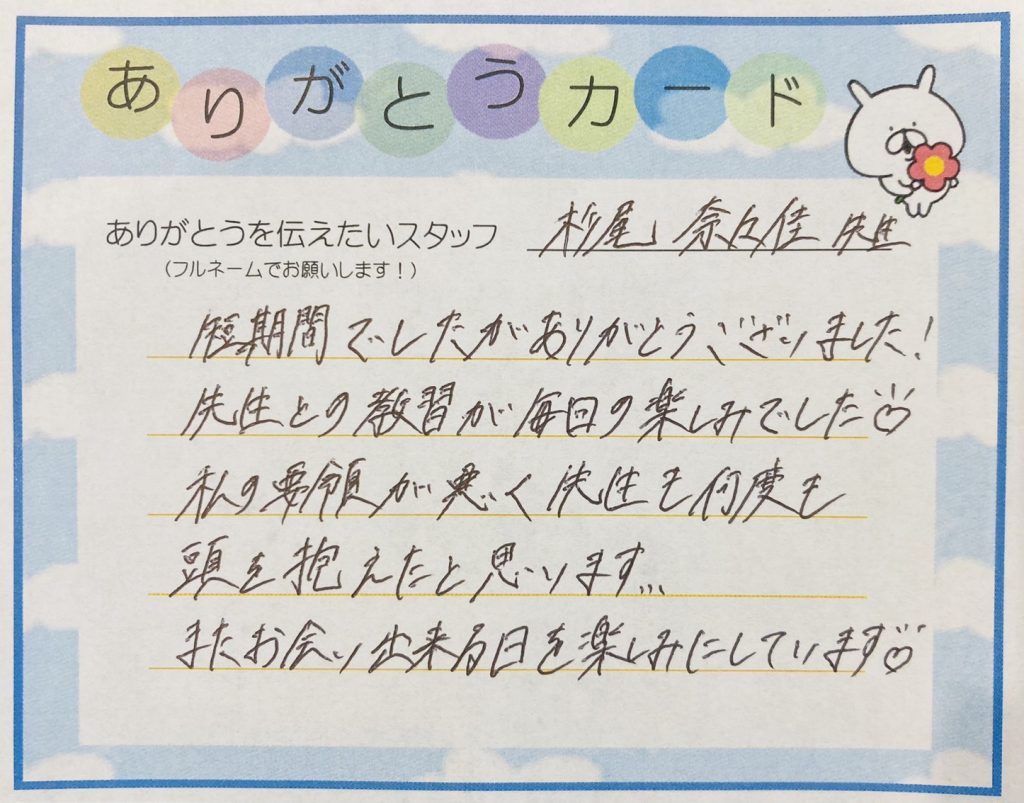 ありがとうカード
ありがとうを伝えたいスタッフ 杉尾 奈々佳 先生
(フルネームでお願いします!)
短期間でしたがありがとうございました!
先生との教習が毎回の楽しみでした♡
私の要領が悪く先生も何度も
頭を抱えたと思います...
またお会い出来る日を楽しみにしています♡